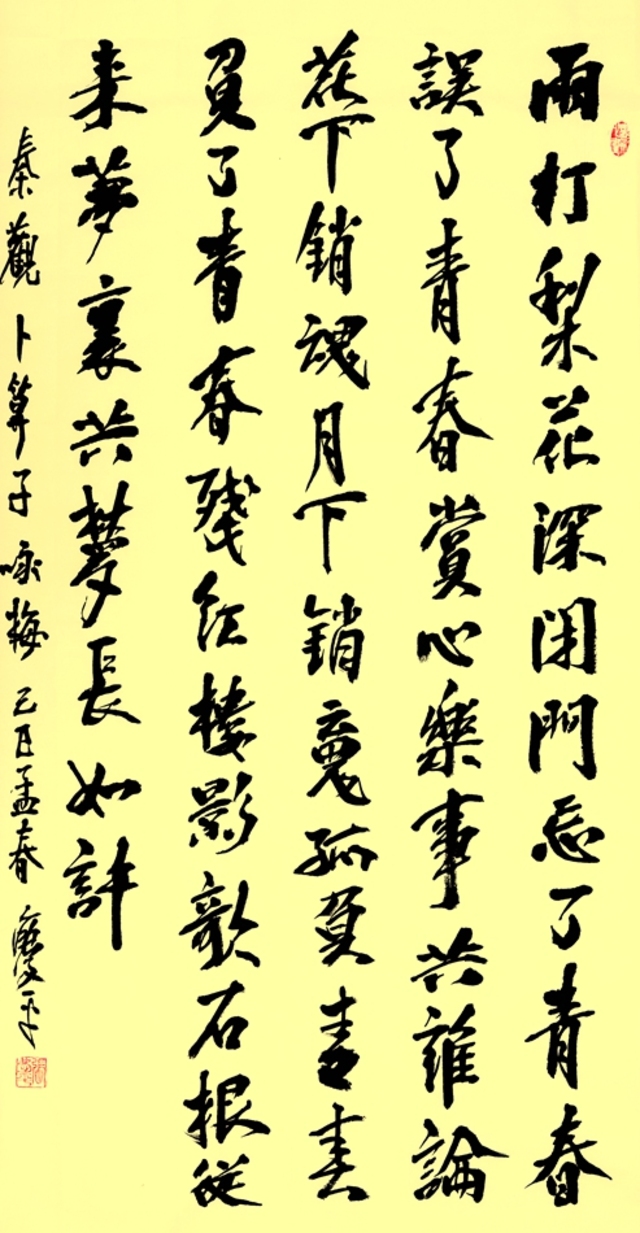 雨打梨花深閉門忘了青春
誤了青春賞心樂事共誰論
花下銷魂月下銷魂孤負青春
負了青春殘紅樓影歌石根從
来夢裏共夢長如許
秦觀卜算子咏梅己丑孟春慶平